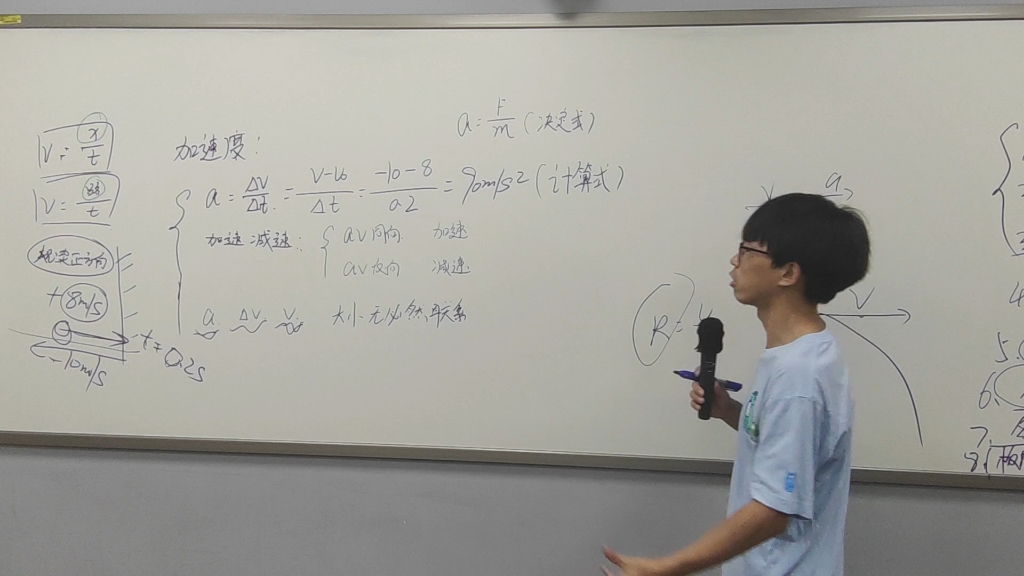 V = x/t
V = 路/t
规定正方向
+8m/s
-10m/s
t = 0.2s
加速度:
a = F/m (决定式)
a = ΔV/Δt = V-V0/Δt = -10-8/0.2 = 90m/s2 (计算式)
加速 减速: { aV同向 加速
aV反向 减速
a ΔV V 大小无必然联系
V a
R =
V
4
5.
6.
7.
8.